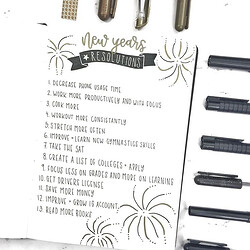 New years
RESOLUTIONS
1. DECREASE PHONE USAGE TIME
2. WORK MORE PRODUCTIVELY AND WITH FOCUS
3. COOK MORE
4. WORKOUT MORE CONSISTANTLY
5. STRETCH MORE OFTEN
6. IMPROVE + LEARN NEW GYMNASTICS SKILLS
7. TAKE THE SAT
8. CREATE A LIST OF COLLEGES + APPLY
9. FOCUS LESS ON GRADES AND MORE ON LEARNING
10. GET DRIVERS LICENSE
11. SAVE MORE MONEY
12. IMPROVE + GROW IG ACCOUNT
13. READ MORE BOOKS